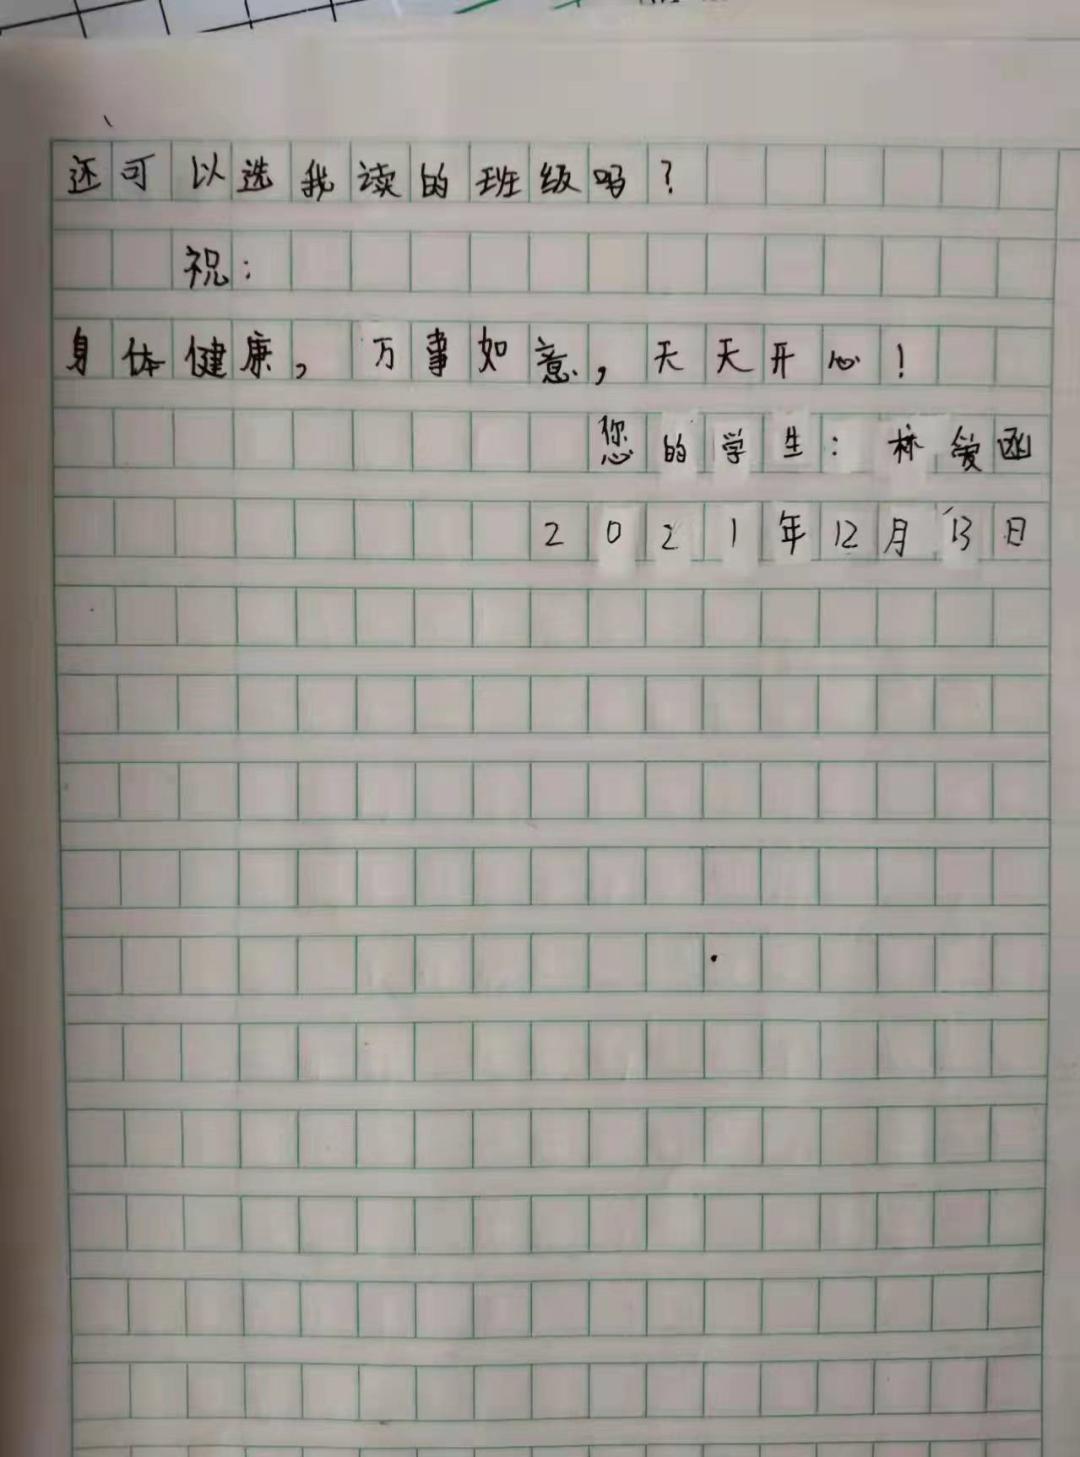 还可以选我读的班级吗?
祝:
身体健康,万事如意,天天开心!
您的学生:林爱函
2021年12月13日